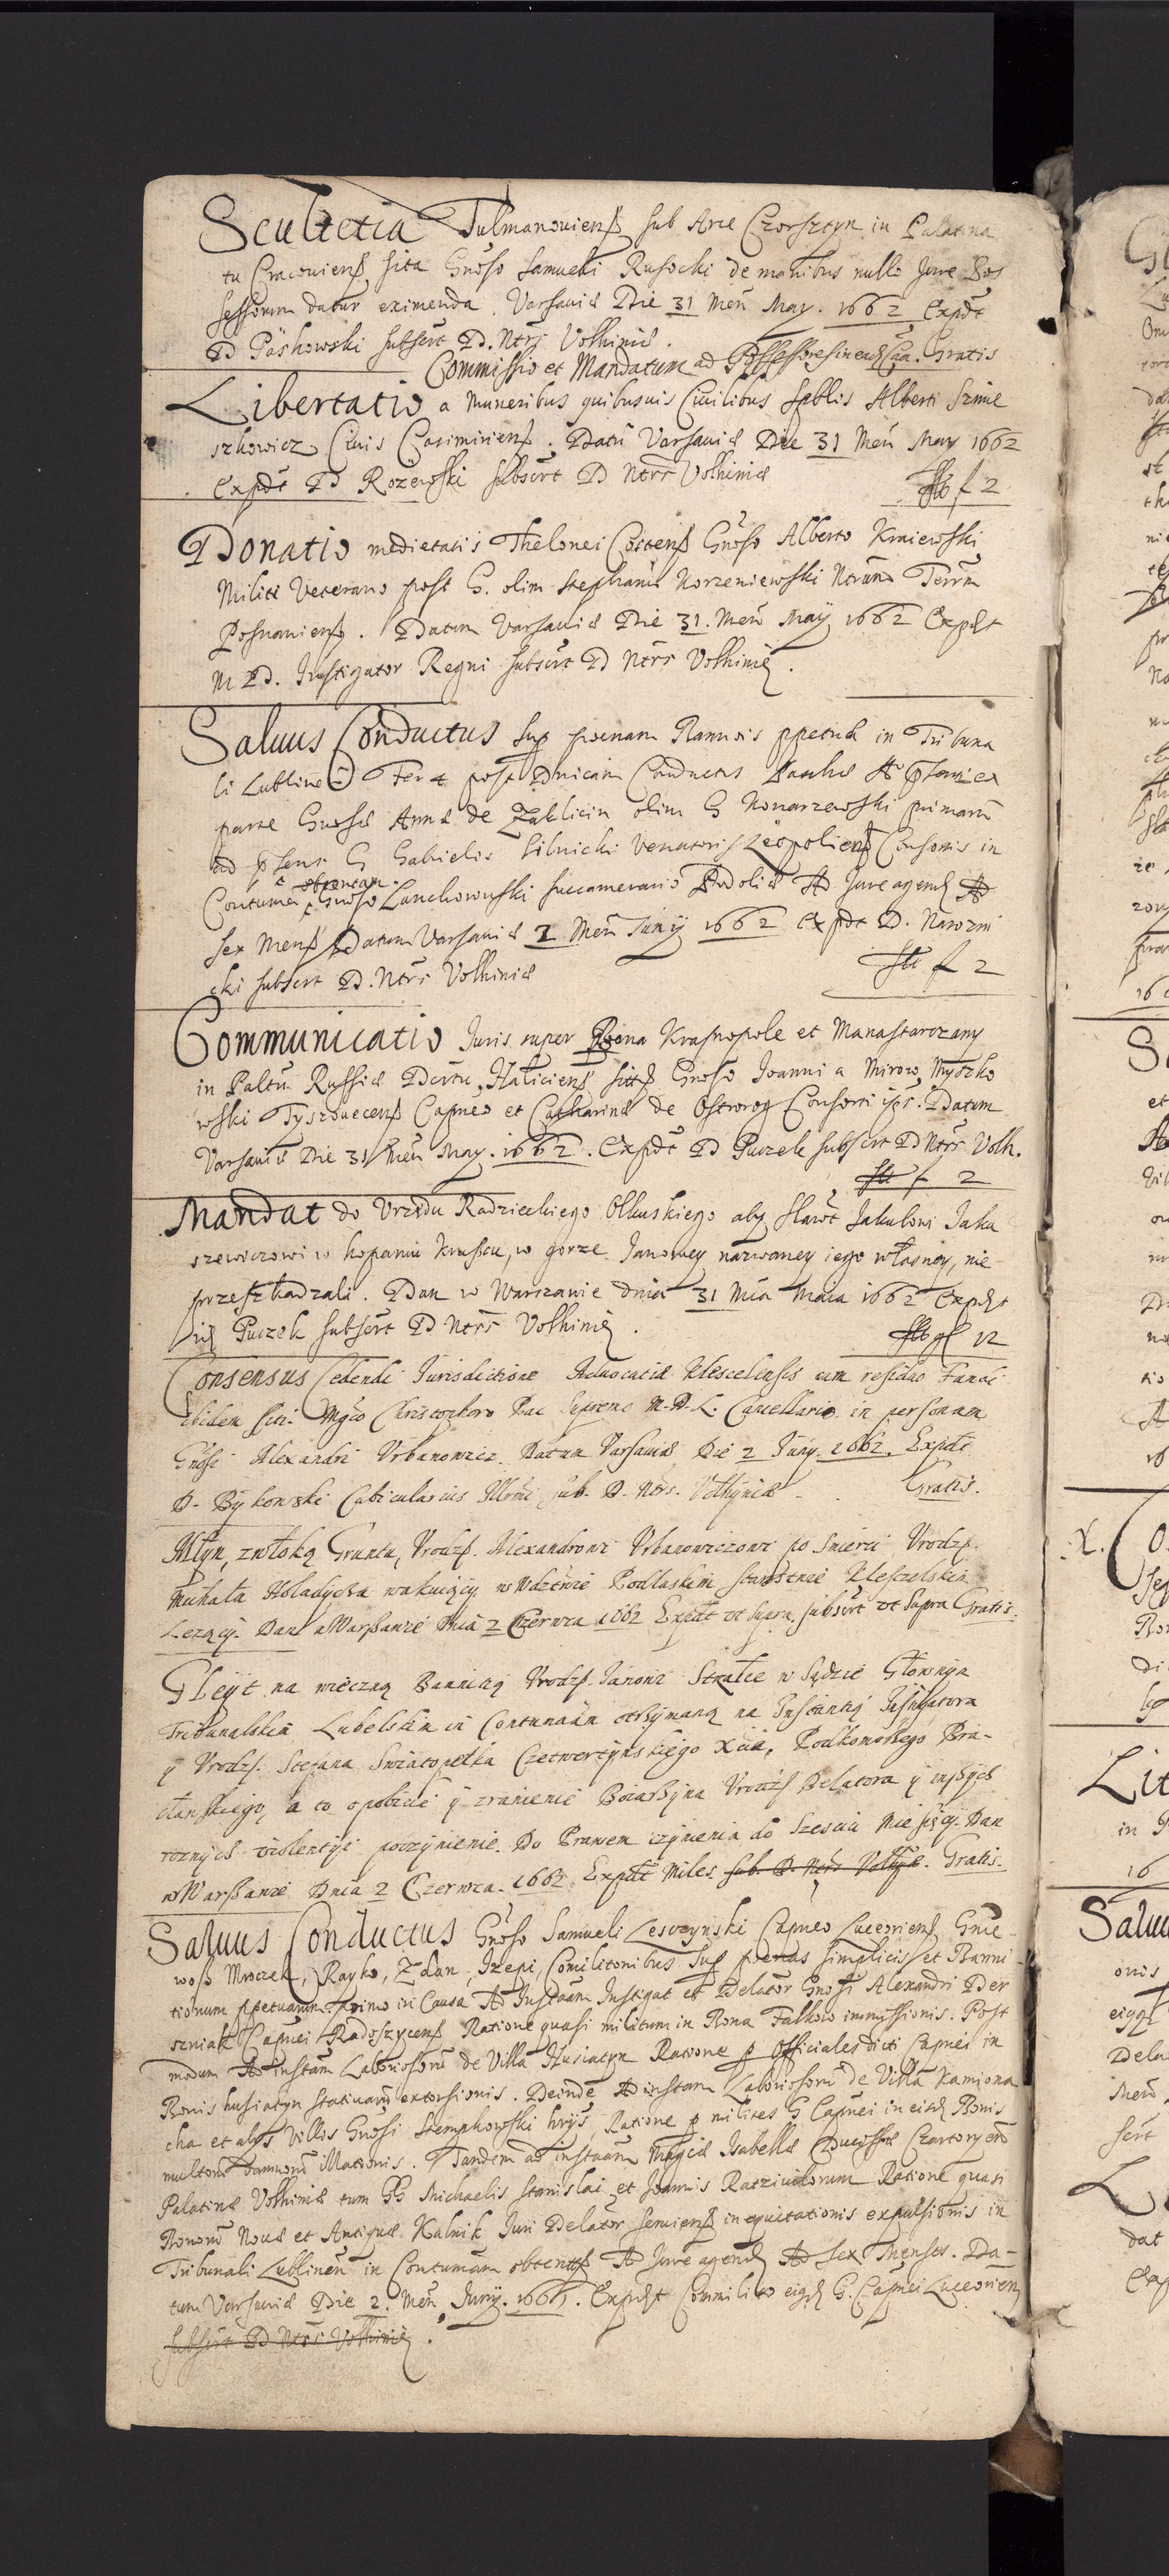 Scultetia Tulmanouiens sub Arce Czorsztyn in Palatina
tu Cracouiens sita Gnoso Samueli Rusocki de manibus nulli Jure Pos
sessorum datur eximenda. Varsauiæ Die 31 Men May. 1662 Expdt
D Paskowski subscrt D. Ntrs Volhiniæ.
Commissio et Mandatum ad Possessores Gratis
Libertatio a Muneribus quibusuis Ciuilibus Alberti
szkowicz Ciuis Casimiriens. Datū Varsauiæ Die 31 Men May 1662
Expdt D Rozewski subscrt D Ntrs Volhiniæ f 2
Donatio medietatis Thelonei Costens Gnoso Alberto Kraiewski
Militi Veterano post G. olim Stephanū Korzeniewski Ntrum Terrm
Posnaniens. Datum Varsauiæ Die 31. Men Maÿ 1662 Expdt
M D. Instigator Regni subscrt D Ntrs Volhiniæ.
Saluus Conductus sup poenam Bannitis ppetuæ in Tribuna
li Lublinen Fer 4 post Dnicam Conductus Paschæ
parte Gnosæ Annæ de Zakliczin olim G Konarzewski primarū
ad G Gabrielis Silnicki Venatoris Leopoliens Consortis in
obtentam.
Contumam Gnoso Lanckoronski succamerario Podoliæ Ad Jure agend Ad
sex Mens Datum Varsauiæ 2 Men Junÿ 1662 Expdt D. Narozni
cki subscrt D. Ntrs Volhiniæ f 2
Communicatio Juris super Bona Krasnopole et Manastarczany
in Paltu Russiæ Dcirtu Haliciens sitis Gnoso Joanni a Mirow Myszko
wski Tyszouecens Capneo et Catharinæ de Ostrorog Consorti ips. Datum
Varsauiæ Die 31 Men May. 1662. Expdt D Puczek subscrt D Ntrs Volh.
f 2
Mandat do Vrzędu Radzieckiego Olkuskiego aby Sławt Jakubowi Jaku
szewiczowi w kopaniu kruszcu, w gorze Janowey nazwaney iego własney, nie
przeszkadzali. Dan w Warszawie dnia 31 Mca Maia 1662 Expdt
Puczek subscrt D Ntrs Volhiniæ. gl 12
Consensus Cedendi Jurisdictione Aduocatiæ Klescelensis cum residuo Fundi
ibidem siti. Mgco Christophoro Pac Supremo M.D.L. Cancellario in personam
Gnosi Alexandri Vrbanowicz. Datum Varsauiæ Die 2 Junÿ. 1662. Expdt
D. Bykowski Cubicularius sub. D. Ntrs. Volhyniæ. Gratis.
Młyn, zwłoką Gruntu, Vrodz. Alexandrowi Vrbanowiczowi po Smierci Vrodz.
Michała Hładyszka wakuiący w Wdztwie Podlaskim starostwie Kleszczelskim
Lezący. Dan w Warszawie Dnia 2 Czerwca 1662 Expdt vt supra subscrt vt Supra Gratis.
Gleÿt na wieczną Bannitią Vrodz. Janowi Strałce w Sądzie Głownym
Tribunalskim Lubelskim in Contumaciam otrzÿmaną na Instantią Instÿgatora
ÿ Vrodz. Stefana Swiatopełka Czetwertÿnskiego Xcia, Podkomorzego Bra-
cławskiego, a to o pobicie ÿ zranienie Boiarzÿna Vrodz Delatora ÿ inszÿch
roznÿch violentÿi poczÿnienie. Do Prawem czÿnienia do Szesciu Miesięcÿ. Dan
w Warszawie Dnia 2 Czerwca. 1662. Expdt Miles sub. D. Ntrs Volhyn. Gratis.
Saluus Conductus Gnoso Samueli Leszczynski Capneo Luceoriens Gnie
wosz Mroczek, Rayko, Zdan, Jzepi, Comilitonibus Sup poenas simplicis et Banni
tionum ppetuarum primo in Causa Ad Instam Instigat et Delator Gnosi Alexandri Der
szniak Capnei Radoszycens Ratione quasi militum in Bona Falkow immissionis. Post
modum Ad instam Laboriosorū de Villa Husiatyn Ratione p Officiales dicti Capnei in
Bonis husiatyn statiuarū extorsionis. Deinde Ad instam Laboriosorū de Villa Kamiona
cha et alys Villis Gnosi Stempkowski hrÿs, Ratione p milites G Capnei in eisd Bonis
multorū damnorū illationis. Tandem ad instam Mgcæ Isabellæ Ducissæ Czartoryen
Palatinæ Volhiniæ tum GG Michaelis Stanislai et Joannis Radziuilorum Ratione quasi
Bonorū Nouæ et Antiquæ Kalnik Juri Delator seruiens inequitationis expulsionis in
Tribunali Lublinen in Contumam obtentis Ad Jure agend Ad sex Menses. Da-
tum Varsauiæ Die 2. Men Junÿ. 1661. Expdt Commilito eigd G. Capnei Luceorien
subscrt D Ntrs Volhiniæ.